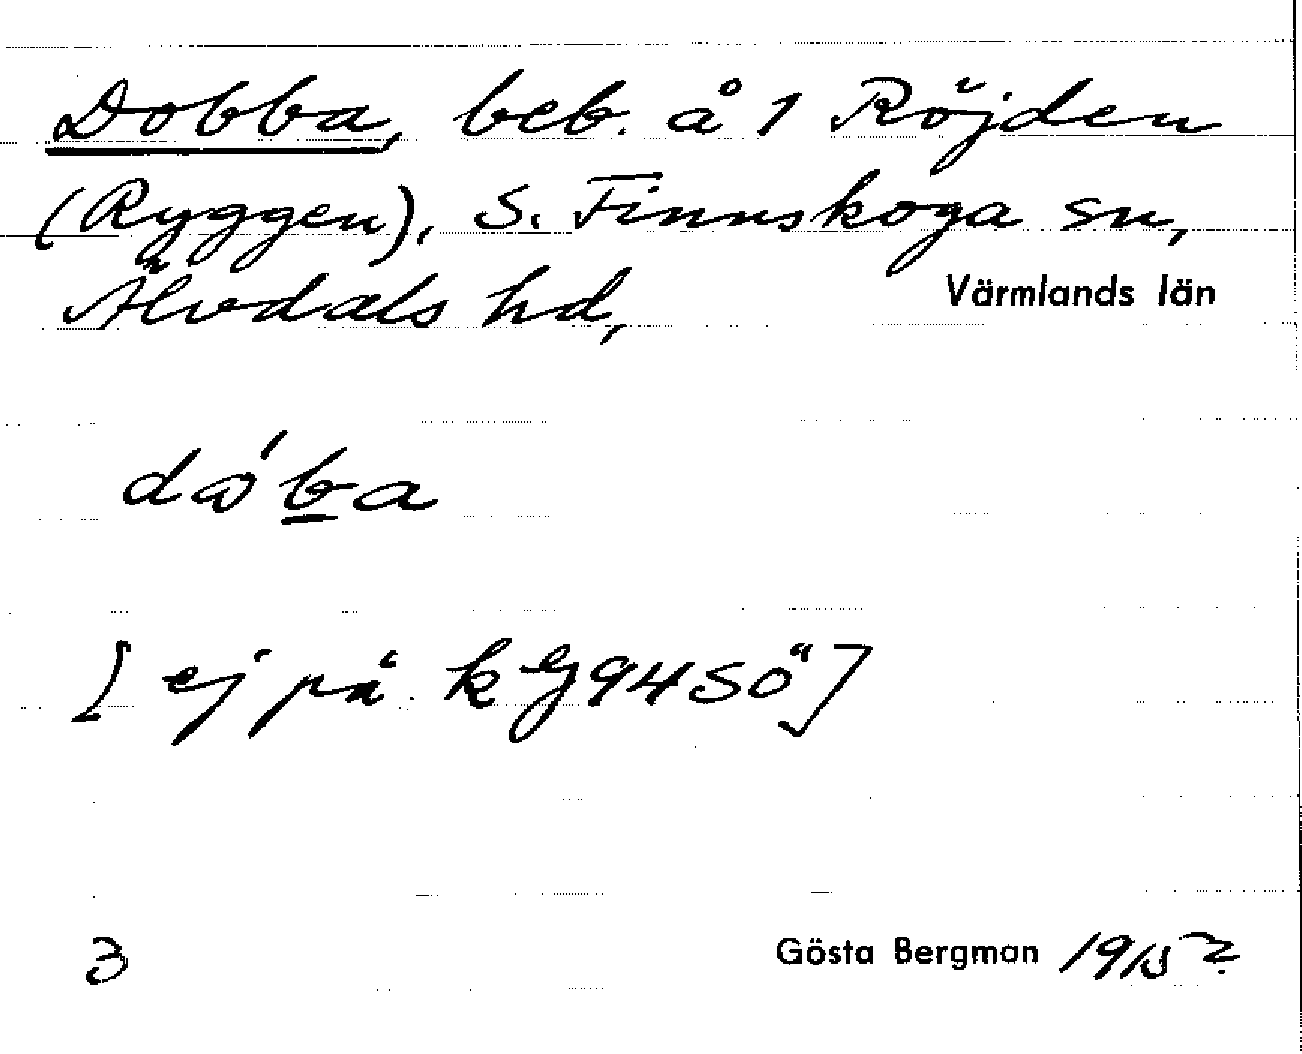 Dobba, beb. å 1 Röjden
(Ryggen), S. Finnskoga sn,
Älvdals hd, Värmlands län
dω´b̲a
[ej på kg 94 SÖ]
3 Gösta Bergman